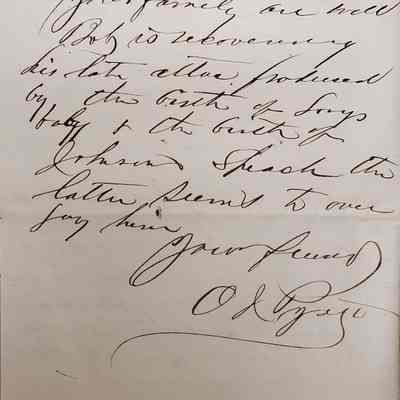 your family are well
Bob is recovering
his late produced
by the birth of
baby & the birth of
Johnsons Speach the
latter seems to over
joy him
Your friend
O